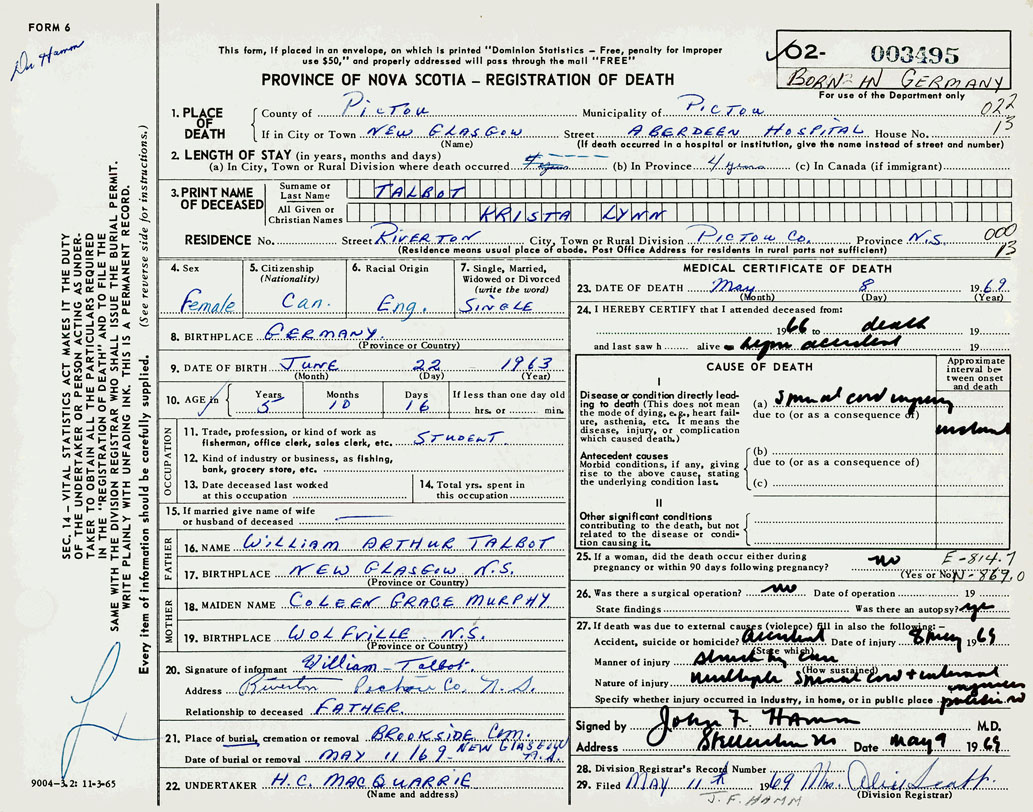 FORM 6
Dr Hamm
This form, if placed in an envelope, on which is printed "Dominion Statistics – Free, penalty for improper
use $50," and properly addressed will pass through the mail "FREE"
PROVINCE OF NOVA SCOTIA – REGISTRATION OF DEATH
02- 003495
BORN IN GERMANY
For use of the Department only
022
13
1. PLACE OF DEATH County of Pictou Municipality of Pictou
If in City or Town NEW GLASGOW Street ABERDEEN HOSPITAL House No.
(Name) (If death occurred in a hospital or institution, give the name instead of street and number)
2. LENGTH OF STAY (in years, months and days)
(a) In City, Town or Rural Division where death occurred (b) In Province 4 years (c) In Canada (if immigrant)
3. PRINT NAME OF DECEASED Surname or Last Name TALBOT
All Given or Christian Names KRISTA LYNN
RESIDENCE No. Street RIVERTON City, Town or Rural Division PICTOU CO. Province N.S. 000
13
(Residence means usual place of abode. Post Office Address for residents in rural parts not sufficient)
4. Sex Female
5. Citizenship (Nationality) Can.
6. Racial Origin Eng.
7. Single, Married, Widowed or Divorced (write the word) SINGLE
8. BIRTHPLACE GERMANY.
(Province or Country)
9. DATE OF BIRTH JUNE 22 1963
(Month) (Day) (Year)
10. AGE in Years 5 Months 10 Days 16 If less than one day old hrs. or min.
OCCUPATION
11. Trade, profession, or kind of work as fisherman, office clerk, sales clerk, etc. STUDENT.
12. Kind of industry or business, as fishing, bank, grocery store, etc.
13. Date deceased last worked at this occupation
14. Total yrs. spent in this occupation
15. If married give name of wife or husband of deceased
FATHER
16. NAME WILLIAM ARTHUR TALBOT
17. BIRTHPLACE NEW GLASGOW N.S.
(Province or Country)
MOTHER
18. MAIDEN NAME COLEEN GRACE MURPHY
19. BIRTHPLACE WOLFVILLE N.S.
(Province or Country)
20. Signature of informant William Talbot
Address Riverton Pictou Co. N.S.
Relationship to deceased FATHER.
21. Place of burial, cremation or removal BROOKSIDE CEM.
NEW GLASGOW N.S.
Date of burial or removal MAY 11/69
22. UNDERTAKER H.C. MACQUARRIE
(Name and address)
MEDICAL CERTIFICATE OF DEATH
23. DATE OF DEATH May 8 1969.
(Month) (Day) (Year)
24. I HEREBY CERTIFY that I attended deceased from:
1966 to death 19
and last saw h alive accident 19
CAUSE OF DEATH
Approximate interval between onset and death
I
Disease or condition directly leading to death (This does not mean the mode of dying, e.g., heart failure, asthenia, etc. It means the disease, injury, or complication which caused death.)
(a) Spinal cord injury
due to (or as a consequence of)
instant
Antecedent causes
Morbid conditions, if any, giving rise to the above cause, stating the underlying condition last.
(b)
due to (or as a consequence of)
(c)
II
Other significant conditions
contributing to the death, but not related to the disease or condition causing it.
25. If a woman, did the death occur either during pregnancy or within 90 days following pregnancy? no
(Yes or No)
E-814.7
N-869.0
26. Was there a surgical operation? no Date of operation 19
State findings Was there an autopsy? yes
27. If death was due to external causes (violence) fill in also the following:–
Accident, suicide or homicide? Accident Date of injury 8 May 1969
(State which)
Manner of injury struck by car
(How sustained)
Nature of injury multiple Spinal cord + internal injuries
Specify whether injury occurred in industry, in home, or in public place public rd
Signed by John F. Hamm M.D.
Address Stellarton NS Date May 9 1969
28. Division Registrar's Record Number
29. Filed MAY 11th 1969 Mrs.
(Division Registrar)
J.F. HAMM
SEC. 14 – VITAL STATISTICS ACT MAKES IT THE DUTY
OF THE UNDERTAKER OR PERSON ACTING AS UNDER-
TAKER TO OBTAIN ALL THE PARTICULARS REQUIRED
IN THE "REGISTRATION OF DEATH" AND TO FILE THE
SAME WITH THE DIVISION REGISTRAR WHO SHALL ISSUE THE BURIAL PERMIT.
WRITE PLAINLY WITH UNFADING INK. THIS IS A PERMANENT RECORD.
Every item of information should be carefully supplied. (See reverse side for instructions.)
9004-3.2: 11-3-65